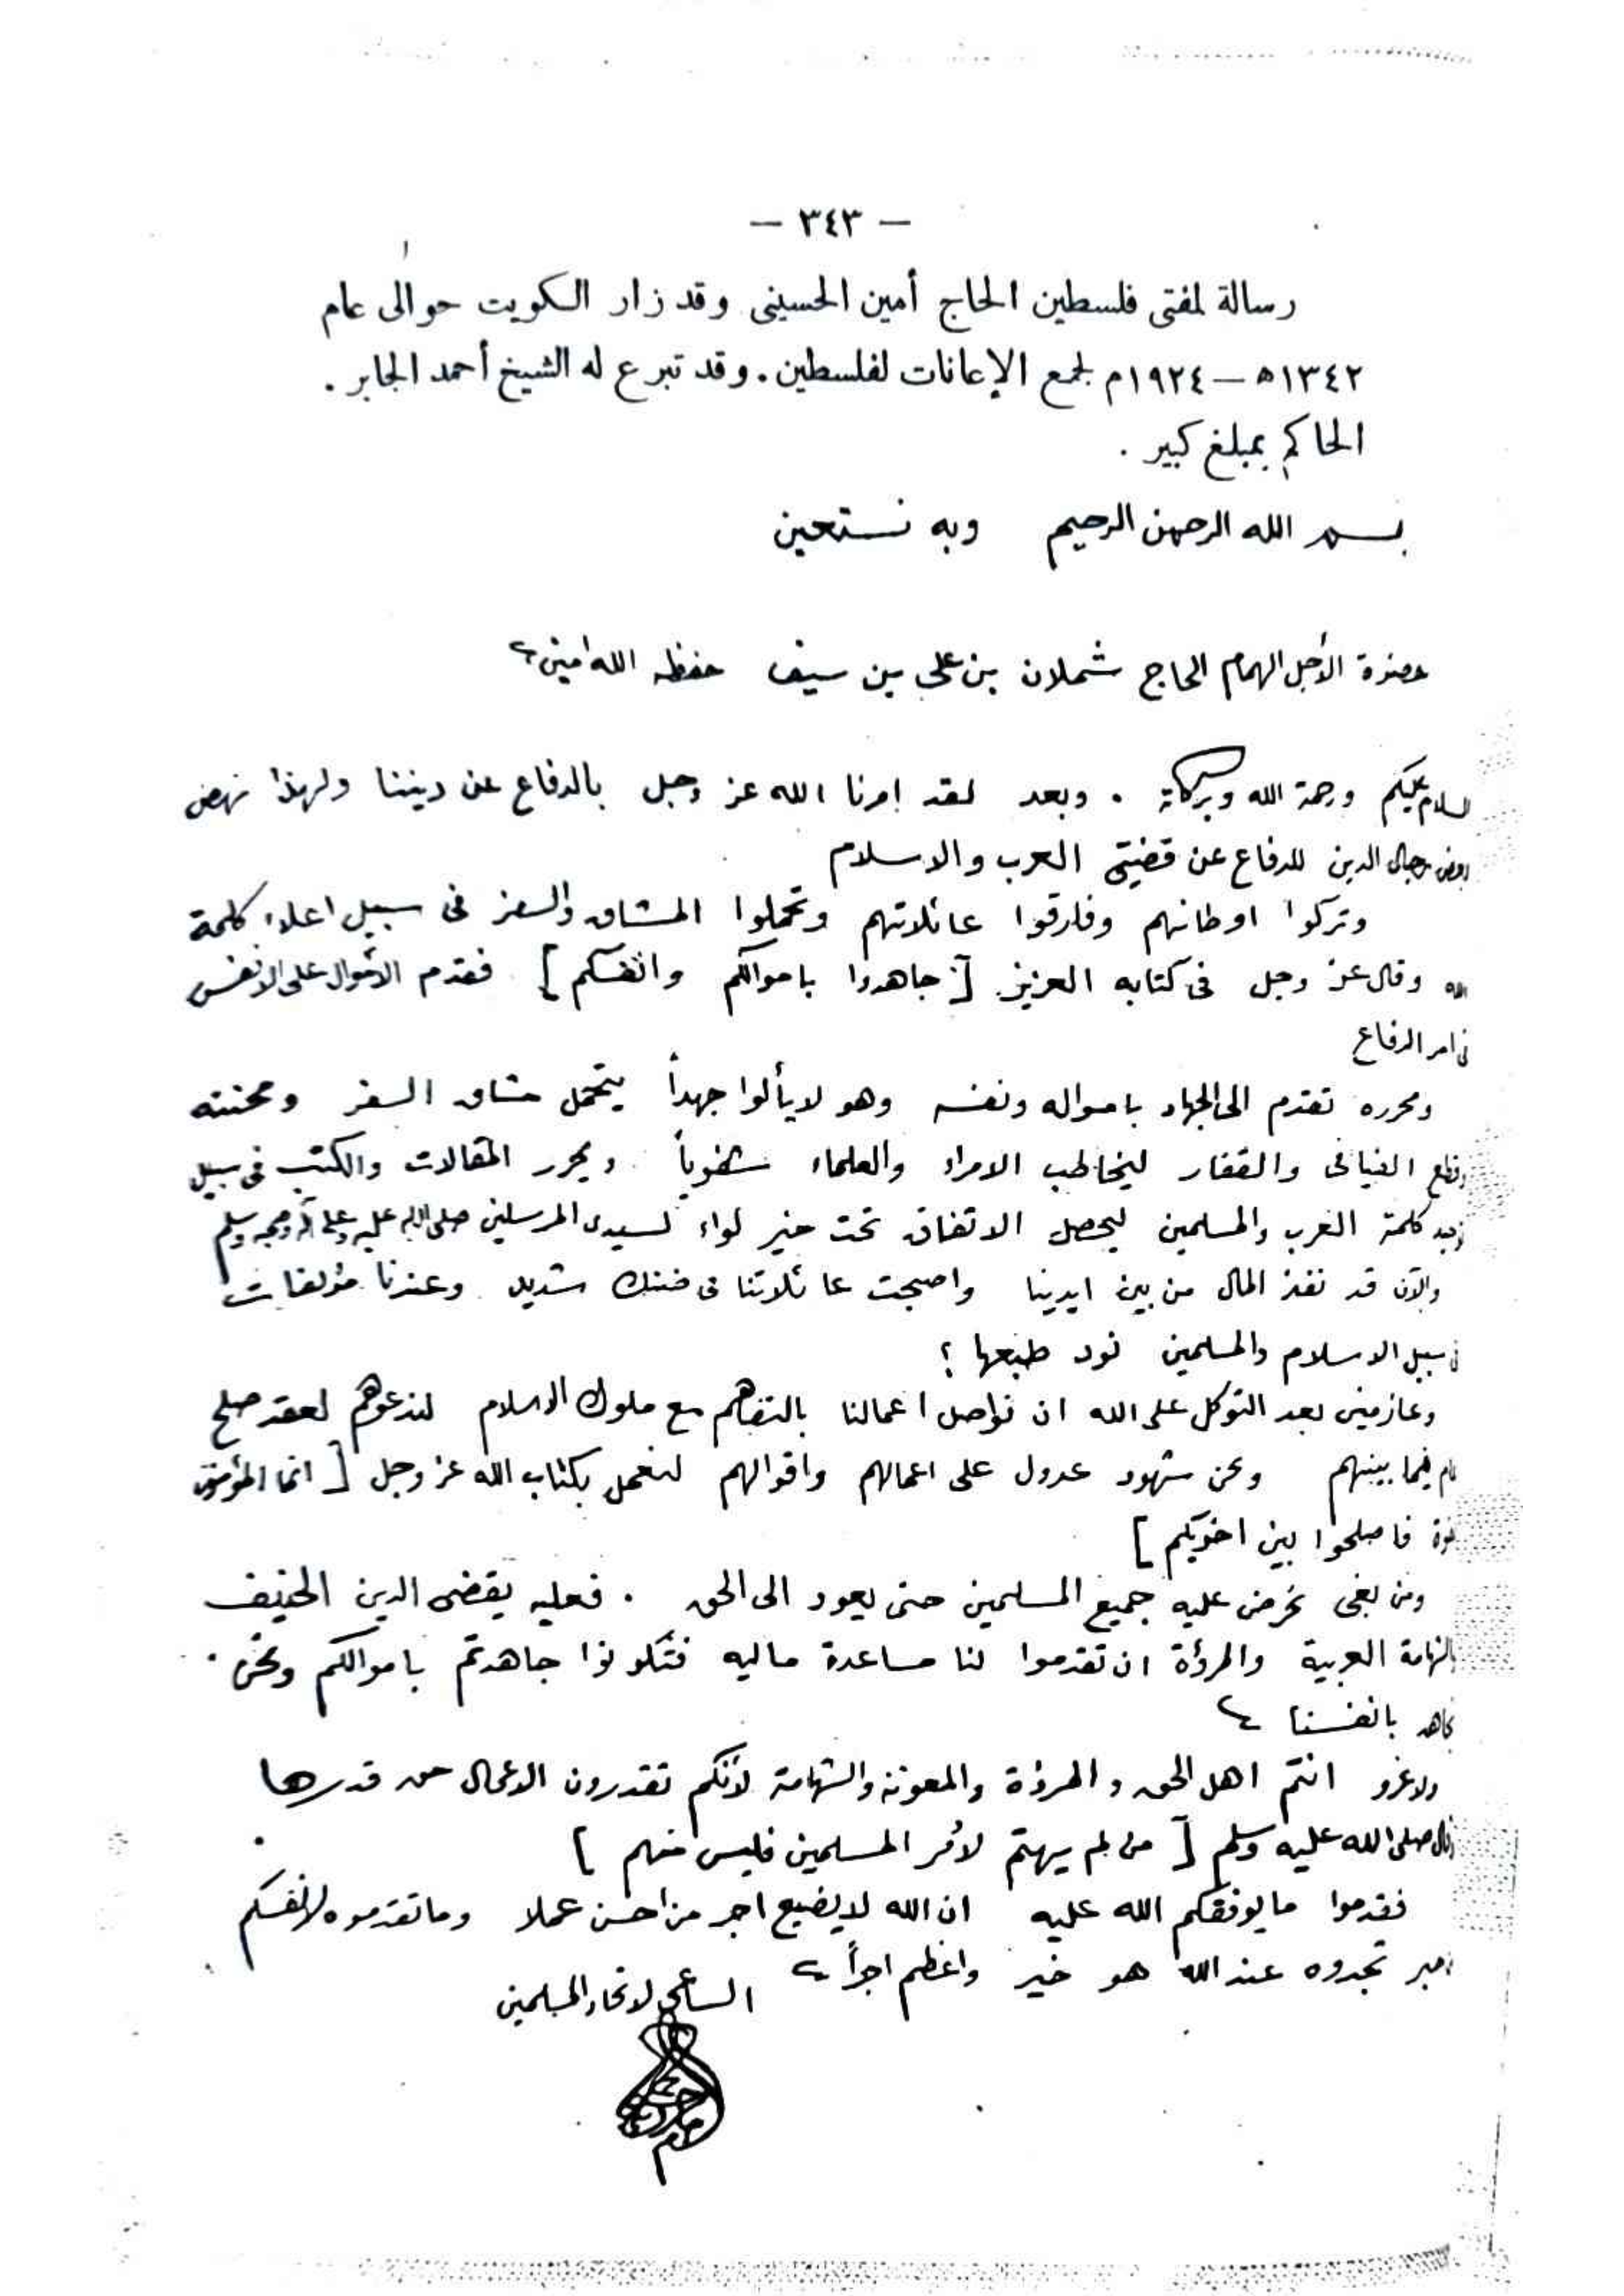 — ٣٤٣ —
رسالة لمفتى فلسطين الحاج أمين الحسينى وقد زار الكويت حوالى عام
١٣٤٢ه – ١٩٢٤م لجمع الإعانات لفلسطين. وقد تبرع له الشيخ أحمد الجابر.
الحاكم بمبلغ كبير.
بسم الله الرحمن الرحيم وبه نستعين
حضرة الأجل الهمام الحاج شملان بن على بن سيف حفظه الله امين
السلام عليكم ورحمة الله وبركاته . وبعد لقد امرنا الله عز وجل بالدفاع عن ديننا ولهذا نهض
رجال الدين للدفاع عن قضيتى العرب والاسلام
وتركوا اوطانهم وفارقوا عائلاتهم وتحملوا المشاق والسفر فى سبيل اعلاء كلمة
الله وقال عز وجل فى كتابه العزيز [ جاهدوا باموالكم وانفسكم ] فقدم الأموال على الانفس
فى امر الدفاع
ومحرره تقدم الى الجهاد بامواله ونفسه وهو لا يألوا جهداً يتحمل مشاق السفر ومحنته
الفيافى والقفار ليخاطب الامراء والعلماء شفوياً ويحرر المقالات والكتب فى سبيل
كلمة العرب والمسلمين ليحصل الاتفاق تحت خير لواء لسيدى المرسلين صلى الله عليه وعلى آله وصحبه وسلم
والآن قد نفذ المال من بين ايدينا واصبحت عائلاتنا فى ضنك شديد وعندنا مؤلفات
فى سبيل الاسلام والمسلمين نود طبعها ؟
وعازمين بعد التوكل على الله ان نواصل اعمالنا بالتفاهم مع ملوك الاسلام لندعوهم لعقد صلح
فيما بينهم ونحن شهود عدول على اعمالهم واقوالهم لنعمل بكتاب الله عز وجل [ انما المؤمنون
اخوة فاصلحوا بين اخويكم ]
ومن بغى نحرض عليه جميع المسلمين حتى يعود الى الحق . فعليه يقضى الدين الحنيف
والشهامة العربية والمرؤة ان تقدموا لنا مساعدة ماليه فتكونوا جاهدتم باموالكم ونحن
نجاهد بانفسنا
ولا غرو انتم اهل الحق والمرؤة والمعونة والشهامة لأنكم تقدرون الاعمال حق قدرها
وقال صلى الله عليه وسلم [ من لم يهتم لأمر المسلمين فليس منهم ]
فقدموا ما يوفقكم الله عليه ان الله لا يضيع اجر من احسن عملا وما تقدموه لانفسكم
تجدوه عند الله هو خير واعظم اجراً
الساعى لاتحاد المسلمين